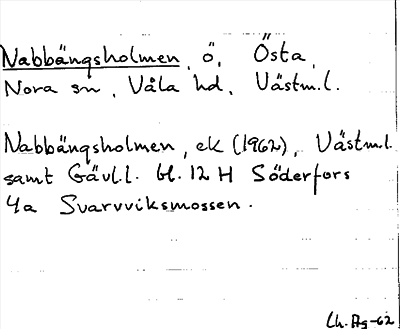 Nabbängsholmen, ö, Östa,
Nora sn, Våla hd, Västm.l.
Nabbängsholmen, ek (1962), Västm.l.
samt Gävl.l. bl. 12 H Söderfors
4a Svarvviksmossen.
Ch. Ag-62